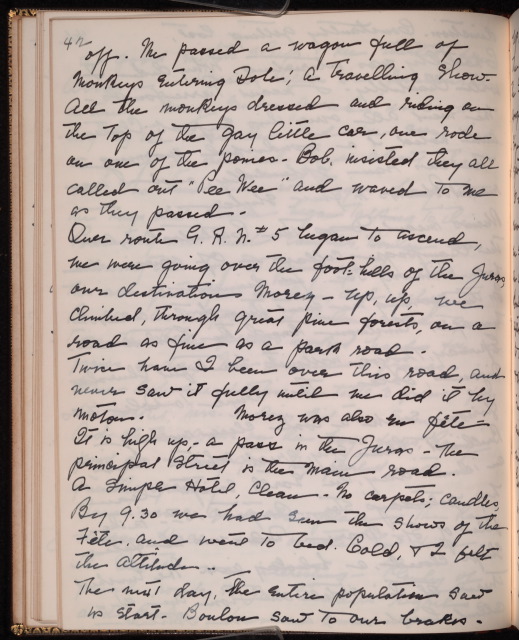 42
off. We passed a wagon full of
Monkeys entering Dole; a travelling show.
All the monkeys dressed and riding on
the top of the gay little car, one rode
on one of the ponies - Bob. insisted they all
called out "Pee Wee" and waved to me
as they passed.
Over route G. R. N. #5 began to ascend,
we were going over the foot-hills of the Juras
our destination Morez - up, up, we
climbed, through great pine forests, on a
road as fine as a park road.
Twice have I been over this road, and
never saw it fully until we did it by
motor. Morez was also en fête -
It is high up - a pass in the Juras - the
principal street is the main road.
A simple Hotel, Clean - No carpets; candles,
By 9.30 we had seen the shows of the
Fête. and went to bed. Cold, & I felt
the altitude..
The next day, the entire population saw
us start. Boulon saw to our brakes.